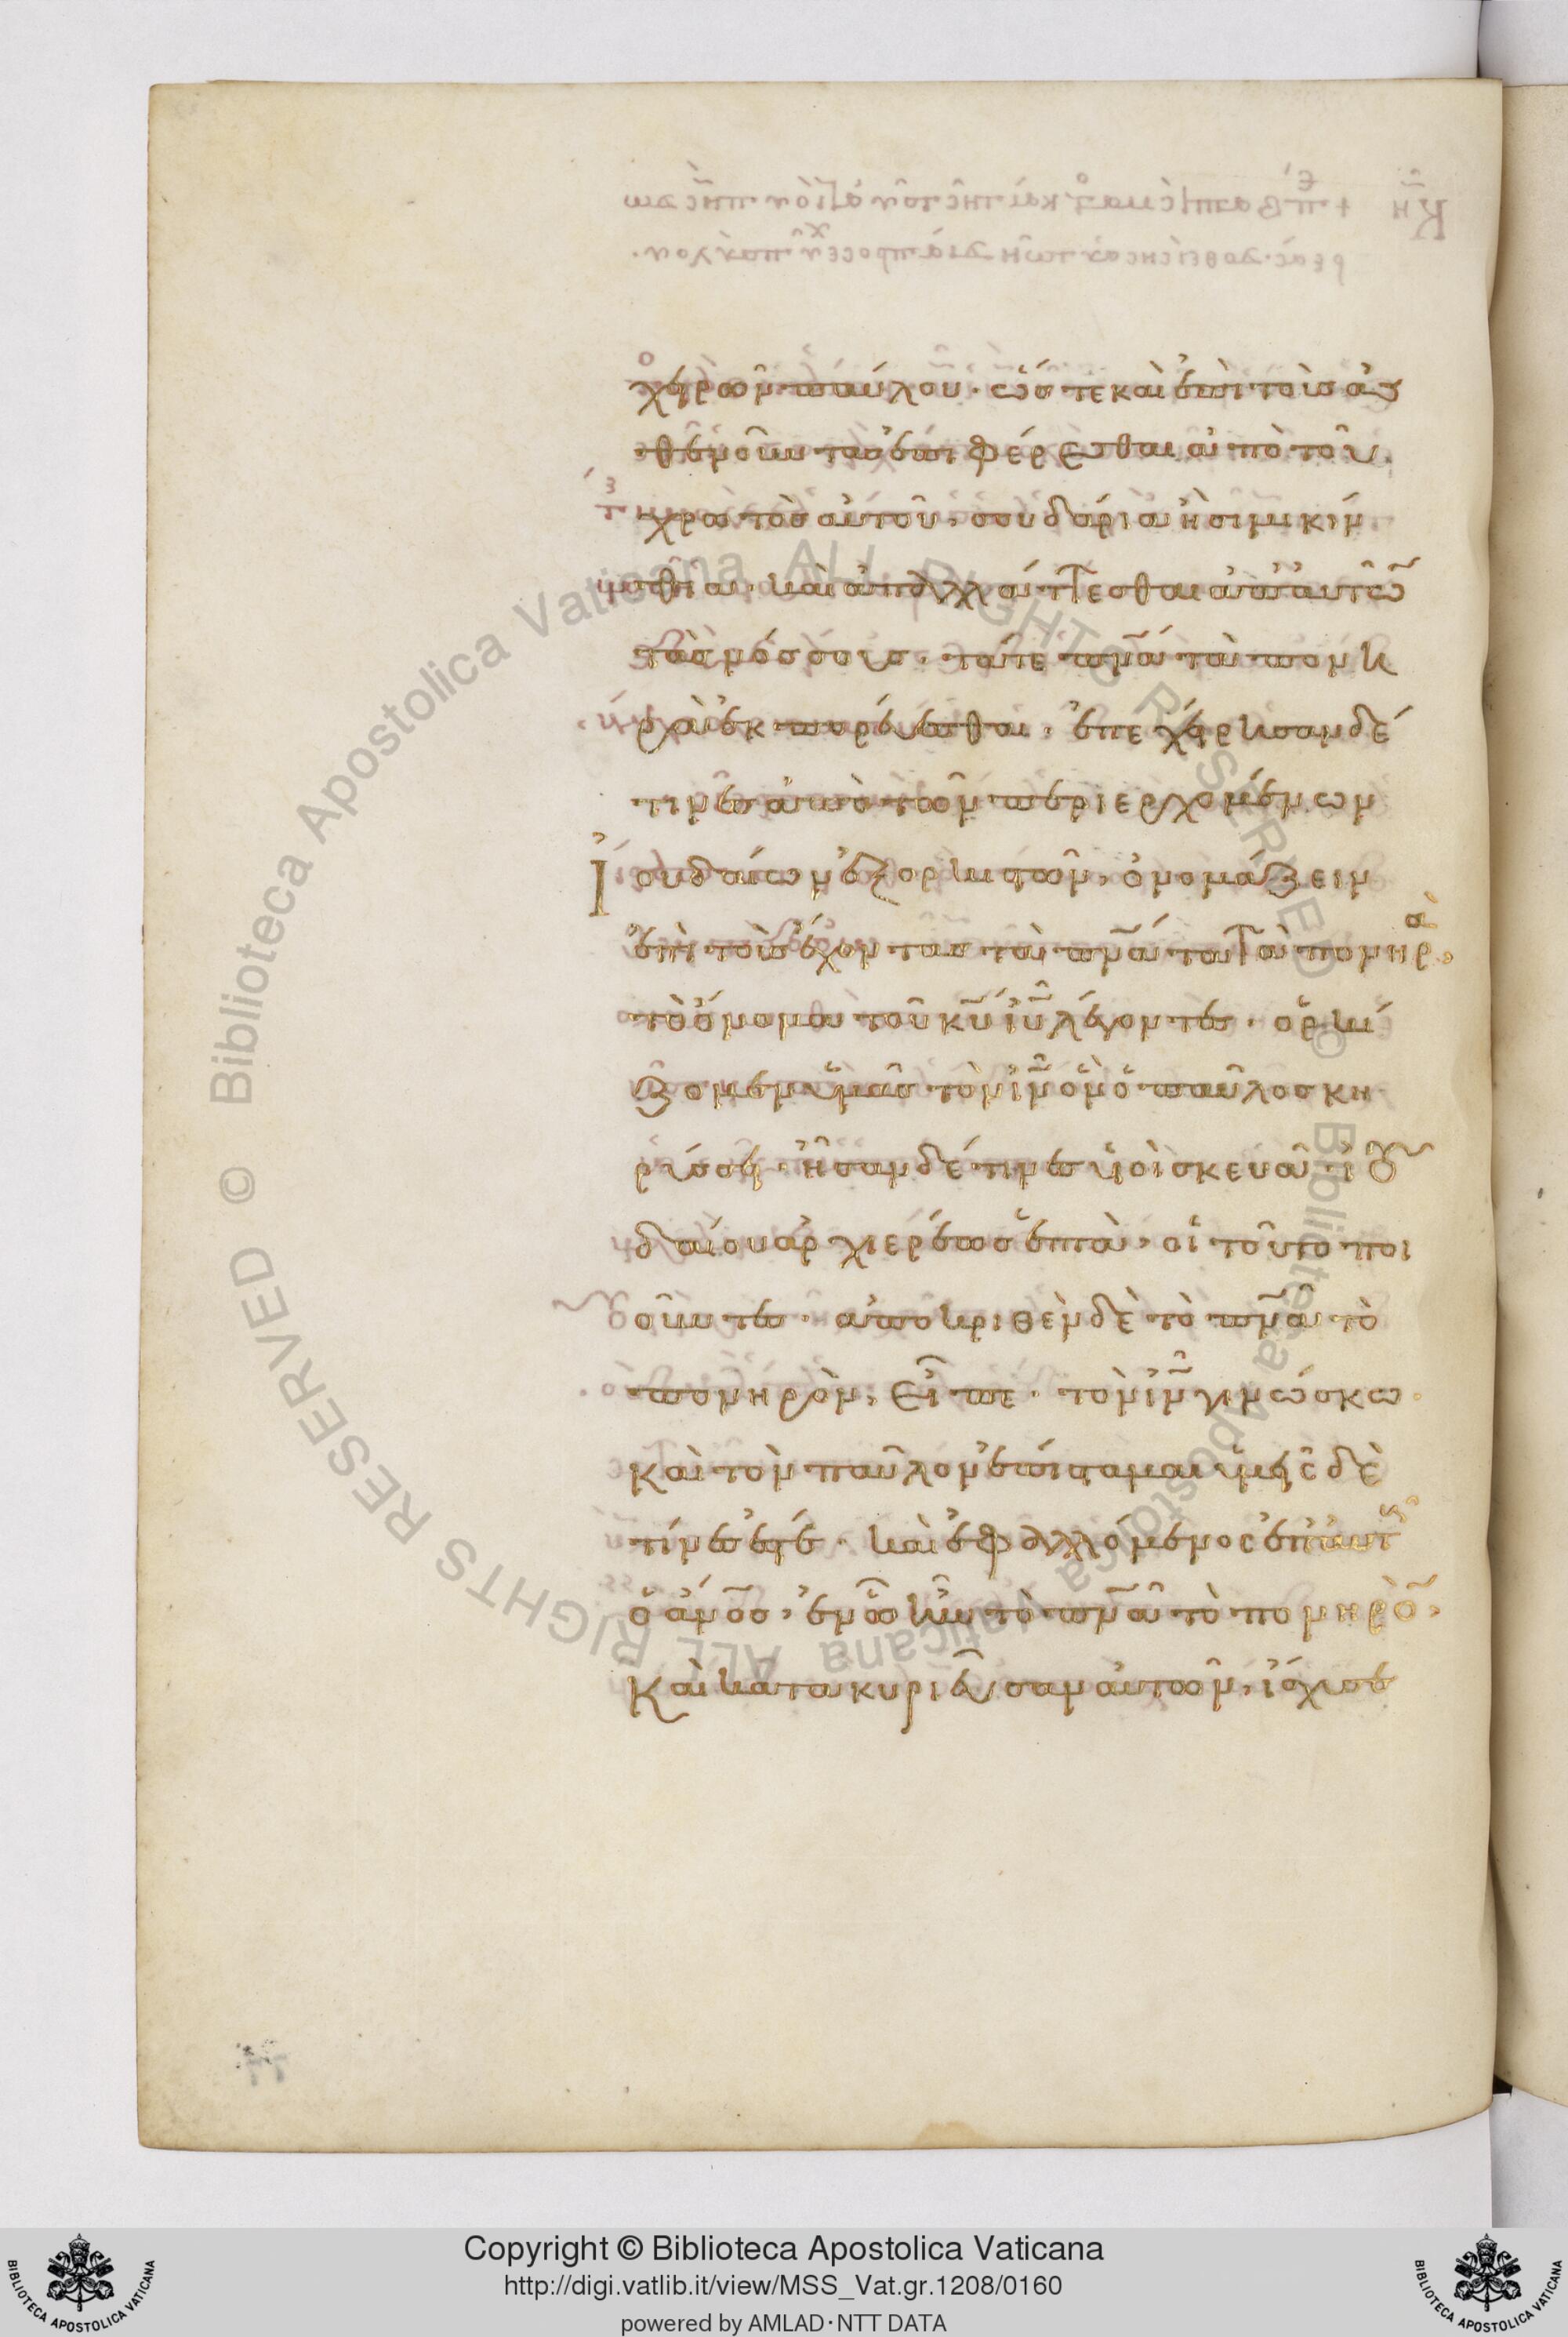 χειρῶν παύλου· ὥστε καὶ ἐπὶ τοὺς ἀσ
θενοῦντας ἐπιφέρεσθαι ἀπὸ τοῦ
χρωτὸς αὐτοῦ, σουδάρια ἢ σιμικίν
θια· καὶ ἀπαλλάττεσθαι ἀπ' αὐτῶ̄
τὰς νόσους· τά τε πν̄ά τὰ πονη
ρὰ ἐκπορεύεσθαι· ἐπεχείρησαν δέ
τινες ἀπὸ τῶν περιερχομένων
Ἰουδαίων ἐξορκιστῶν, ὀνομάζειν
ἐπὶ τοὺς ἔχοντας τὰ πν̄ά τα τὰ πονηρὰ,
τὸ ὄνομα τοῦ κῡ ἰῡ λέγοντες· ὁρκί
ζομεν ὑμᾶς τὸν ἰν̄ ὃν ὁ παῦλος κη
ρύσσει· ἦσαν δέ τινες υἱοὶ σκευᾶ ἰου
δαίου ἀρχιερέως ἑπτὰ, οἱ τοῦτο ποι
οῦντες· ἀποκριθὲν δὲ τὸ πν̄ᾶ τὸ
πονηρὸν, εἶπε· τὸν ἰν̄ γινώσκω
καὶ τὸν παῦλον ἐπίσταμαι ὑμεῖς δὲ
τίνες ἐστέ· καὶ ἐφαλλόμενος ἐπ' αὐτοὺς
ὁ ἄν̄ος, ἐν ᾧ ἦν τὸ πν̄ᾶ τὸ πονηρὸ̄,
καὶ κατακυριεῦσαν αὐτῶν, ἴσχυσε
Copyright © Biblioteca Apostolica Vaticana
http://digi.vatlib.it/view/MSS_Vat.gr.1208/0160
powered by AMLAD·NTT DATA
BIBLIOTECA APOSTOLICA VATICANA
BIBLIOTECA APOSTOLICA VATICANA
Biblioteca Apostolica Vaticana ALL RIGHTS RESERVED ©
Biblioteca Apostolica Vaticana ALL RIGHTS RESERVED ©